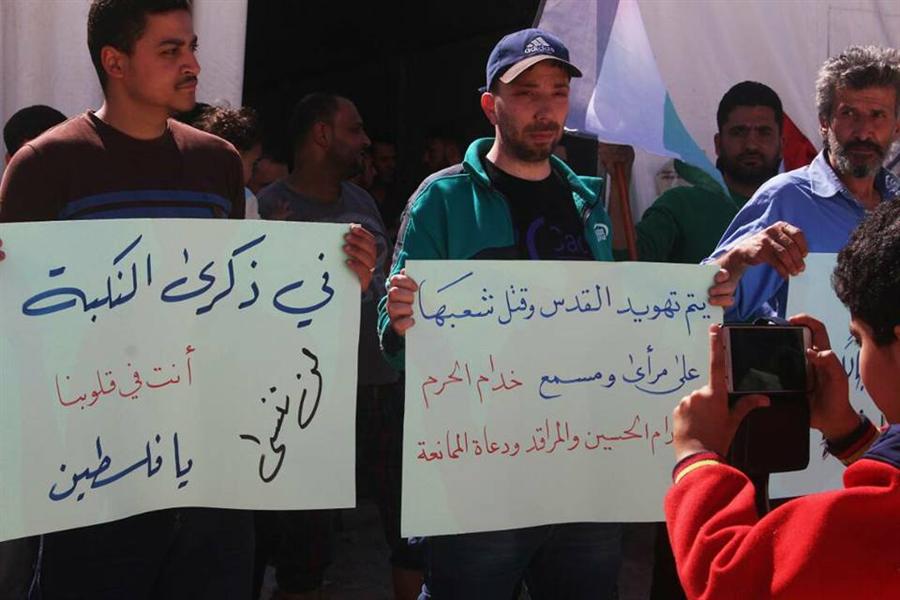 adidas
في ذكرى النكبة
أنت في قلوبنا
لن ننسى
يا فلسطين
يتم تهويد القدس وقتل شعبها
على مرأى ومسمع خدام الحرم
الحسين والمراقد ودعاة الممانعة